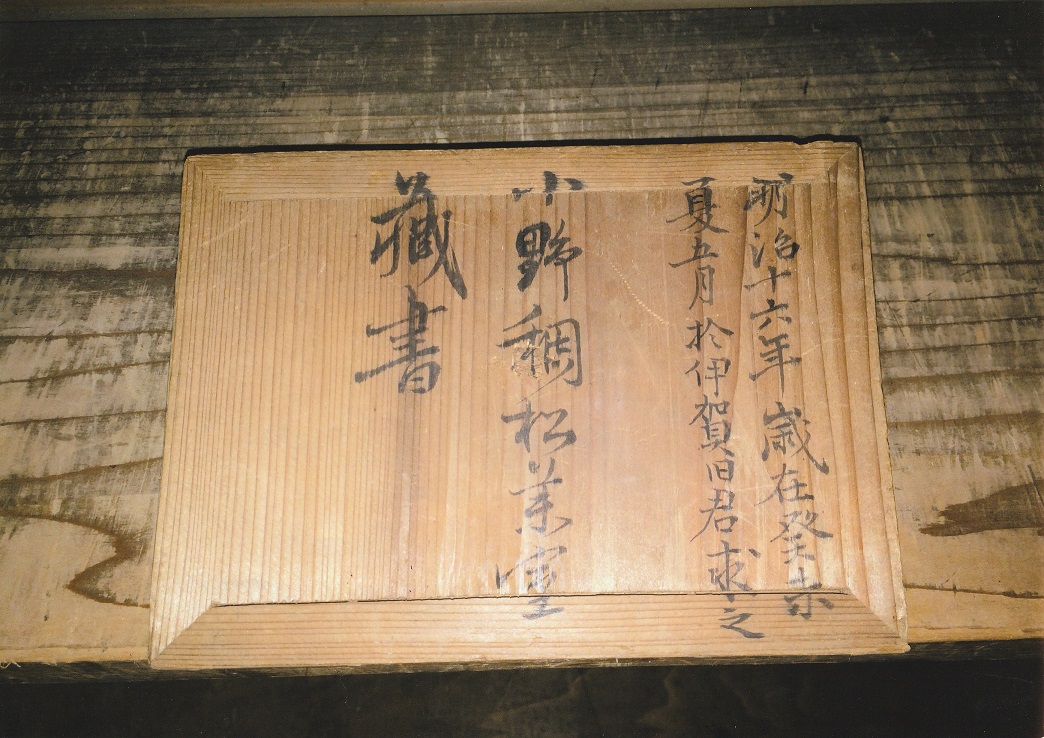 明治十六年歳在癸未
夏五月於伊賀旧君求之
小野稠松葉室
蔵書